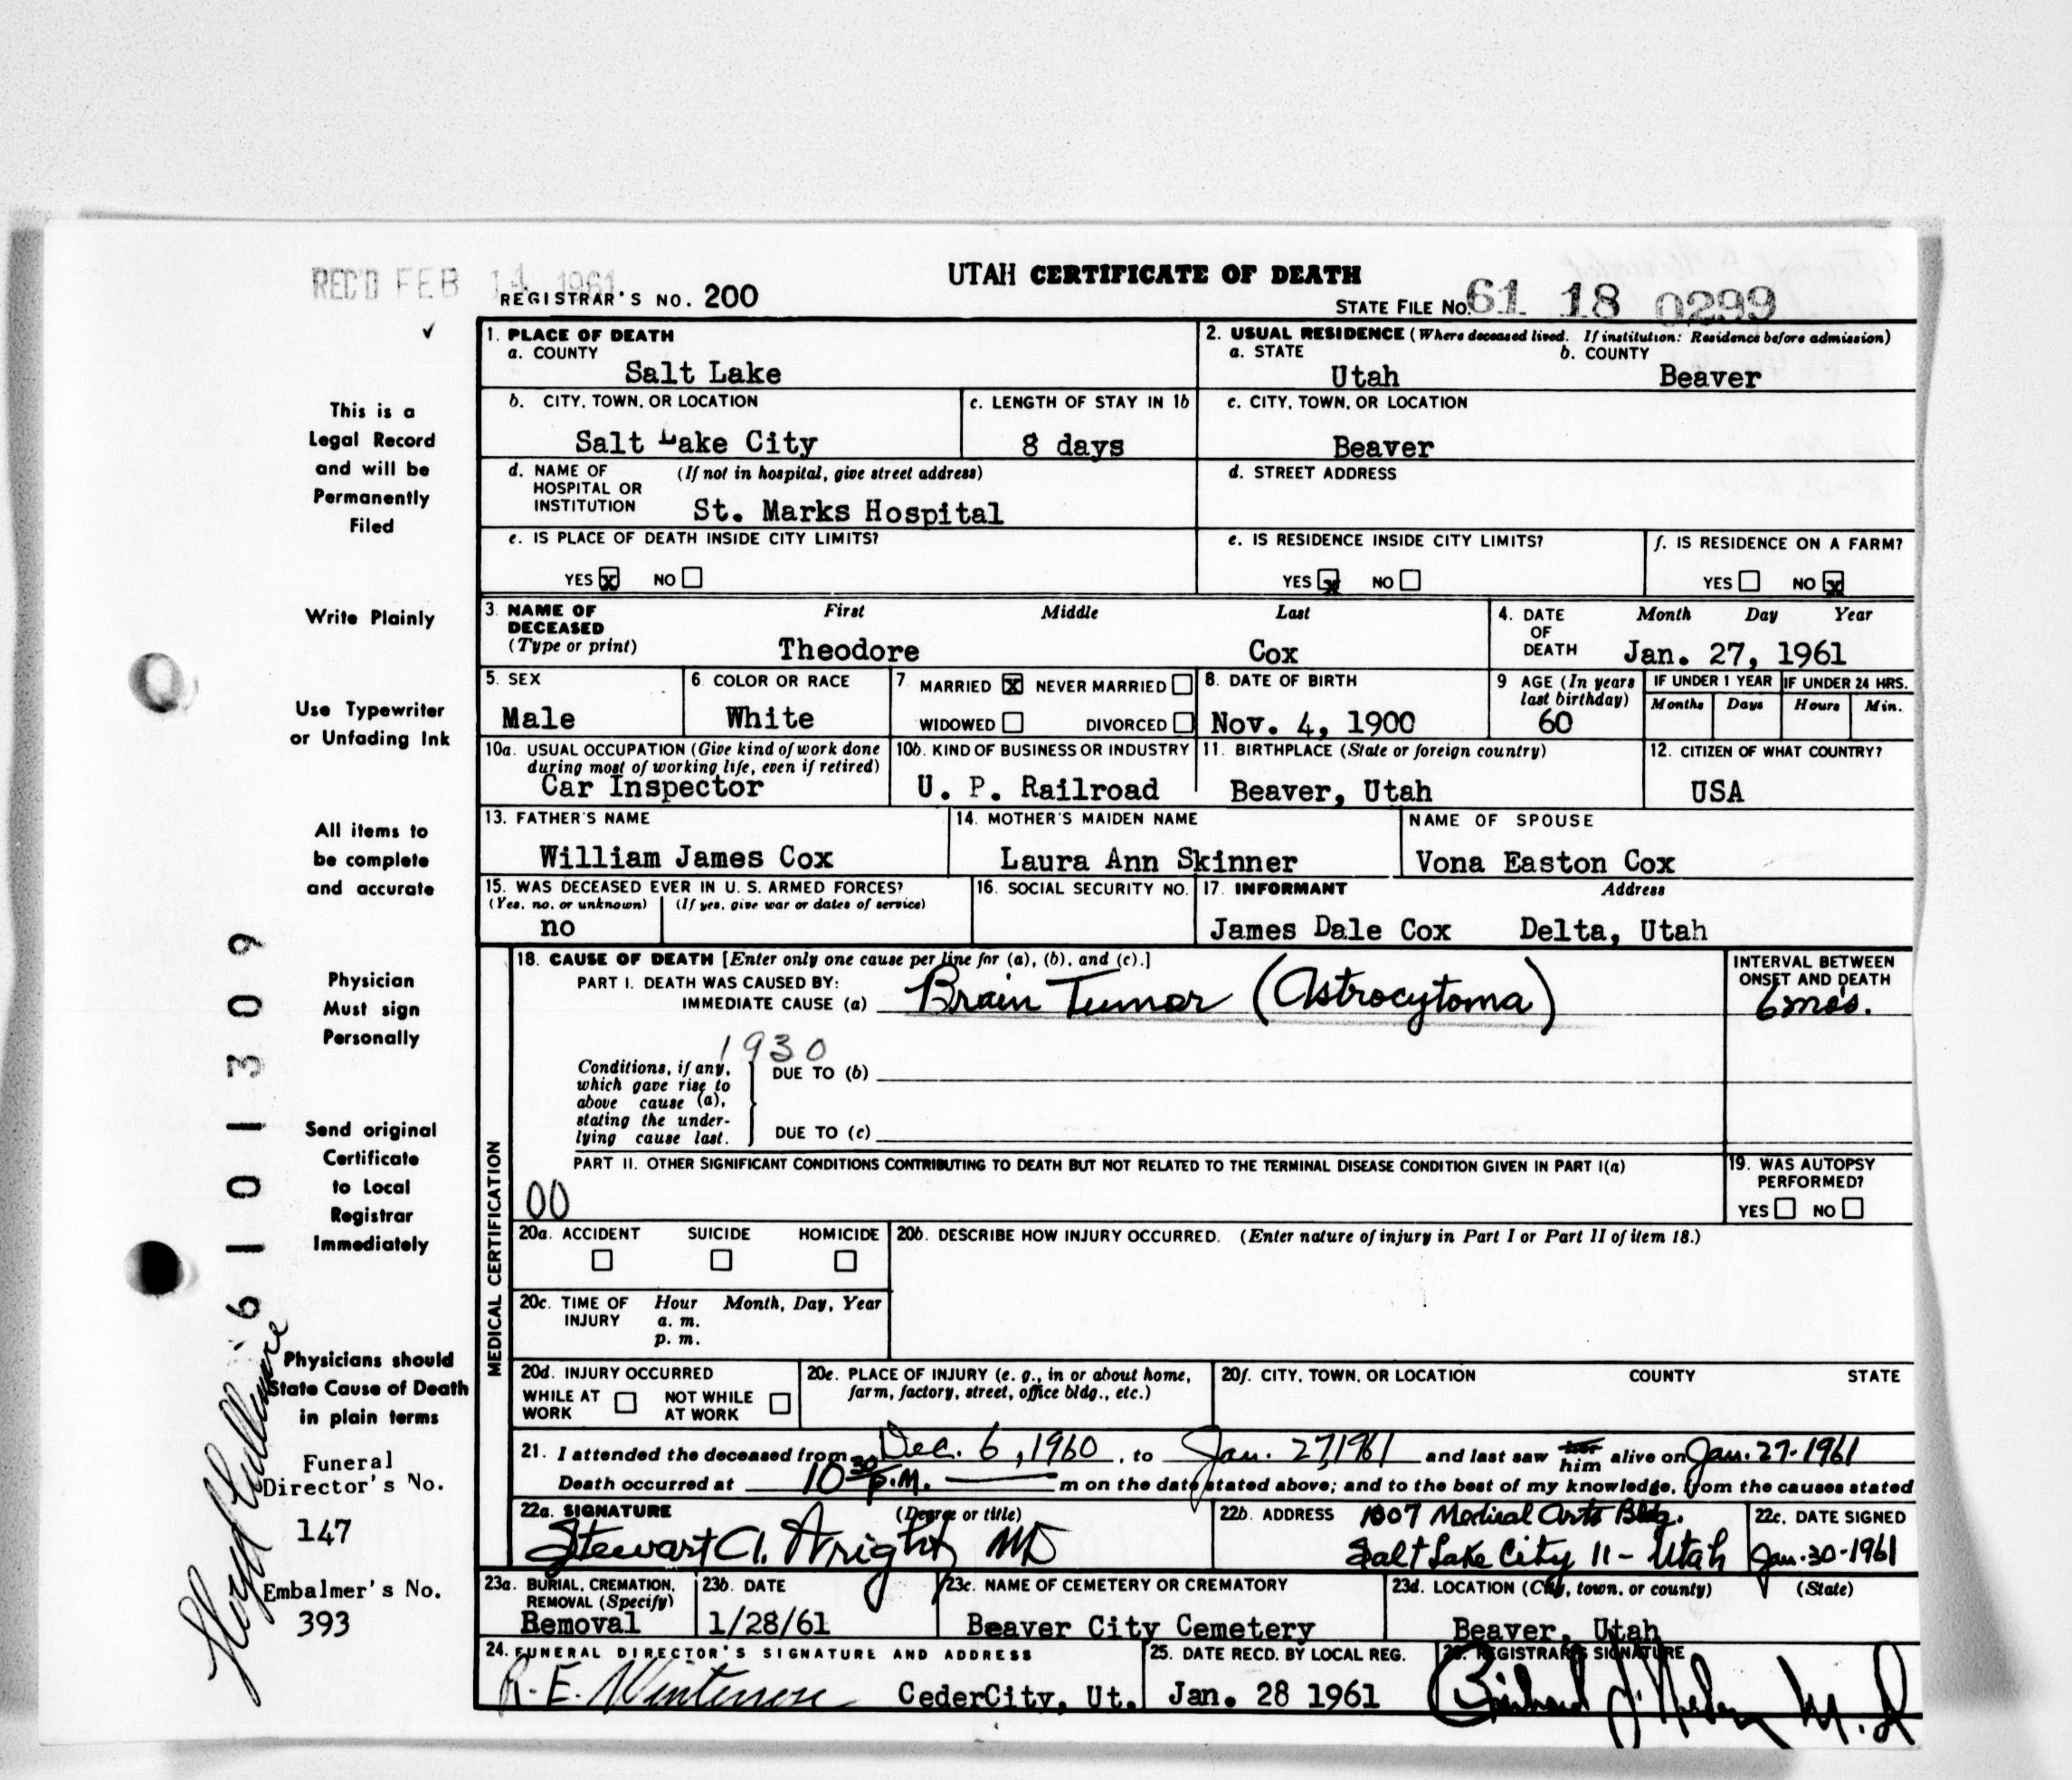 UTAH CERTIFICATE OF DEATH
REC'D FEB 14 1961
REGISTRAR'S NO. 200
STATE FILE NO. 61 18 0299
This is a
Legal Record
and will be
Permanently
Filed
Write Plainly
Use Typewriter
or Unfading Ink
All items to
be complete
and accurate
Physician
Must sign
Personally
Send original
Certificate
to Local
Registrar
Immediately
Physicians should
State Cause of Death
in plain terms
Funeral
Director's No.
147
Embalmer's No.
393
6101309
1. PLACE OF DEATH
a. COUNTY
Salt Lake
2. USUAL RESIDENCE (Where deceased lived. If institution: Residence before admission)
a. STATE b. COUNTY
Utah Beaver
b. CITY, TOWN, OR LOCATION
Salt Lake City
c. LENGTH OF STAY IN 1b
8 days
c. CITY, TOWN, OR LOCATION
Beaver
d. NAME OF (If not in hospital, give street address)
HOSPITAL OR
INSTITUTION St. Marks Hospital
d. STREET ADDRESS
e. IS PLACE OF DEATH INSIDE CITY LIMITS?
YES x NO
e. IS RESIDENCE INSIDE CITY LIMITS?
YES x NO
f. IS RESIDENCE ON A FARM?
YES NO x
3. NAME OF First Middle Last
DECEASED
(Type or print) Theodore Cox
4. DATE Month Day Year
OF
DEATH Jan. 27, 1961
5. SEX
Male
6. COLOR OR RACE
White
7. MARRIED x NEVER MARRIED
WIDOWED DIVORCED
8. DATE OF BIRTH
Nov. 4, 1900
9 AGE (In years
last birthday)
60
IF UNDER 1 YEAR
Months Days
IF UNDER 24 HRS.
Hours Min.
10a. USUAL OCCUPATION (Give kind of work done
during most of working life, even if retired)
Car Inspector
10b. KIND OF BUSINESS OR INDUSTRY
U. P. Railroad
11. BIRTHPLACE (State or foreign country)
Beaver, Utah
12. CITIZEN OF WHAT COUNTRY?
USA
13. FATHER'S NAME
William James Cox
14. MOTHER'S MAIDEN NAME
Laura Ann Skinner
NAME OF SPOUSE
Vona Easton Cox
15. WAS DECEASED EVER IN U. S. ARMED FORCES?
(Yes, no, or unknown) (If yes, give war or dates of service)
no
16. SOCIAL SECURITY NO.
17. INFORMANT Address
James Dale Cox Delta, Utah
MEDICAL CERTIFICATION
18. CAUSE OF DEATH [Enter only one cause per line for (a), (b), and (c).]
PART I. DEATH WAS CAUSED BY:
IMMEDIATE CAUSE (a) Brain Tumor (Astrocytoma)
INTERVAL BETWEEN
ONSET AND DEATH
6 mos.
1930
Conditions, if any,
which gave rise to
above cause (a),
stating the under-
lying cause last.
DUE TO (b)
DUE TO (c)
PART II. OTHER SIGNIFICANT CONDITIONS CONTRIBUTING TO DEATH BUT NOT RELATED TO THE TERMINAL DISEASE CONDITION GIVEN IN PART I(a)
00
19. WAS AUTOPSY
PERFORMED?
YES NO
20a. ACCIDENT SUICIDE HOMICIDE
20b. DESCRIBE HOW INJURY OCCURRED. (Enter nature of injury in Part I or Part II of item 18.)
20c. TIME OF Hour Month, Day, Year
INJURY a. m.
p. m.
20d. INJURY OCCURRED
WHILE AT NOT WHILE
WORK AT WORK
20e. PLACE OF INJURY (e. g., in or about home,
farm, factory, street, office bldg., etc.)
20f. CITY, TOWN, OR LOCATION COUNTY STATE
21. I attended the deceased from Dec. 6, 1960, to Jan. 27, 1961 and last saw her him alive on Jan. 27-1961
Death occurred at 10 30 p.m. m on the date stated above; and to the best of my knowledge, from the causes stated
22a. SIGNATURE (Degree or title)
Stewart A. Wright MD
22b. ADDRESS 1007 Medical Arts Bldg.
Salt Lake City 11 - Utah
22c. DATE SIGNED
Jan. 30-1961
23a. BURIAL, CREMATION,
REMOVAL (Specify)
Removal
23b. DATE
1/28/61
23c. NAME OF CEMETERY OR CREMATORY
Beaver City Cemetery
23d. LOCATION (City, town, or county) (State)
Beaver, Utah
24. FUNERAL DIRECTOR'S SIGNATURE AND ADDRESS
R. E. CederCity, Ut.
25. DATE RECD. BY LOCAL REG.
Jan. 28 1961
26. REGISTRAR'S SIGNATURE
M.D